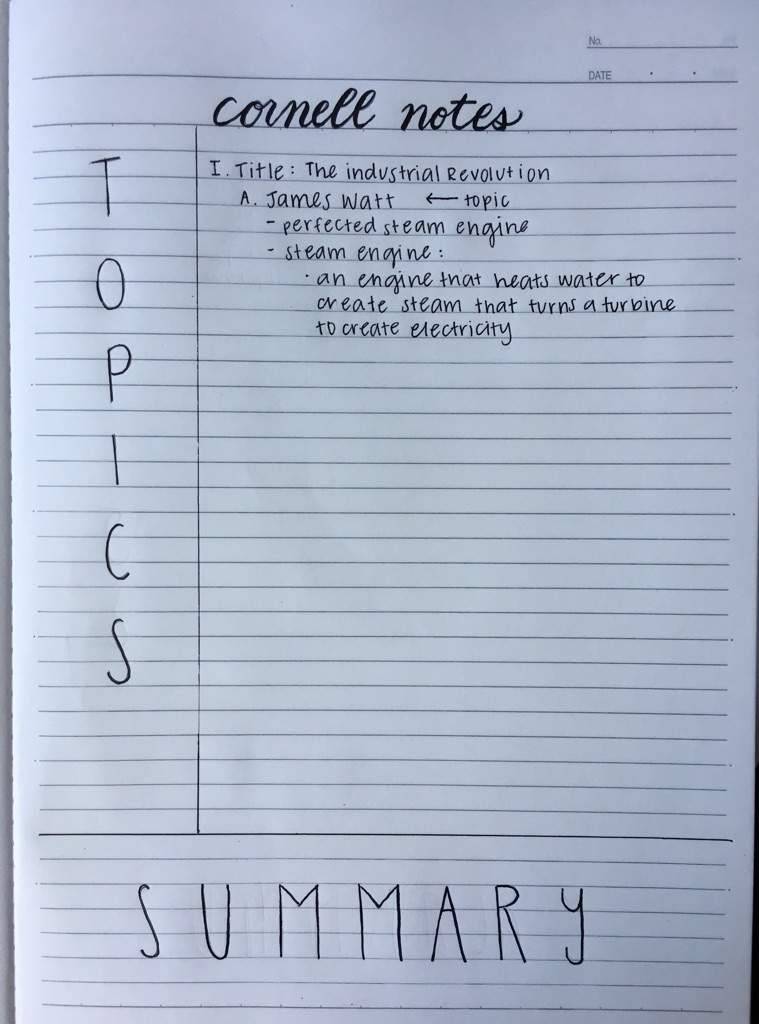 No.
DATE . .
cornell notes
I. Title: The industrial Revolution
A. James Watt ← topic
- perfected steam engine
- steam engine:
· an engine that heats water to
create steam that turns a turbine
to create electricity
T
O
P
I
C
S
SUMMARY